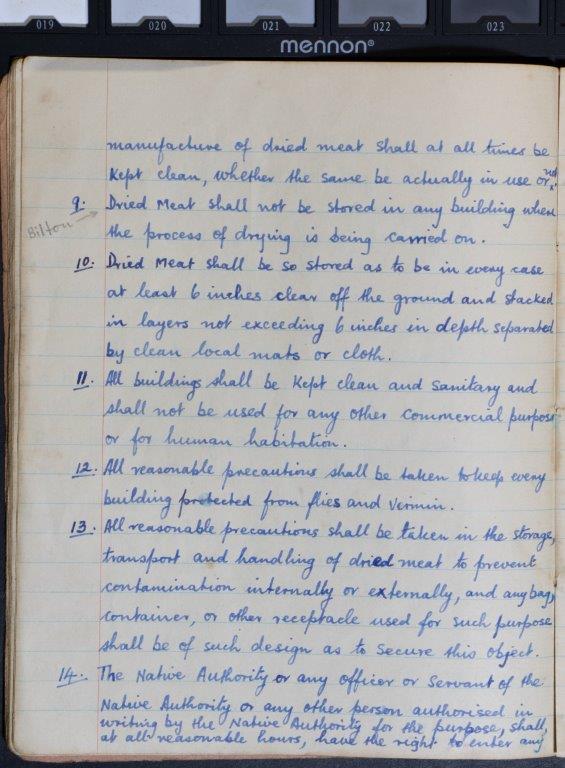 019 020 021 022 023
mennon®
manufacture of dried meat shall at all times be
Kept clean, whether the same be actually in use or not.
9. Dried Meat shall not be stored in any building where
Bilton
the process of drying is being carried on.
10. Dried Meat shall be so stored as to be in every case
at least 6 inches clear off the ground and stacked
in layers not exceeding 6 inches in depth separated
by clean local mats or cloth.
11. All buildings shall be Kept clean and sanitary and
shall not be used for any other commercial purpose
or for human habitation.
12. All reasonable precautions shall be taken to keep every
building protected from flies and vermin.
13. All reasonable precautions shall be taken in the storage,
transport and handling of dried meat to prevent
contamination internally or externally, and any bag,
container, or other receptacle used for such purpose
shall be of such design as to secure this object.
14. The Native Authority or any officer or servant of the
Native Authority or any other person authorised in
writing by the Native Authority for the purpose, shall,
at all reasonable hours, have the right to enter any